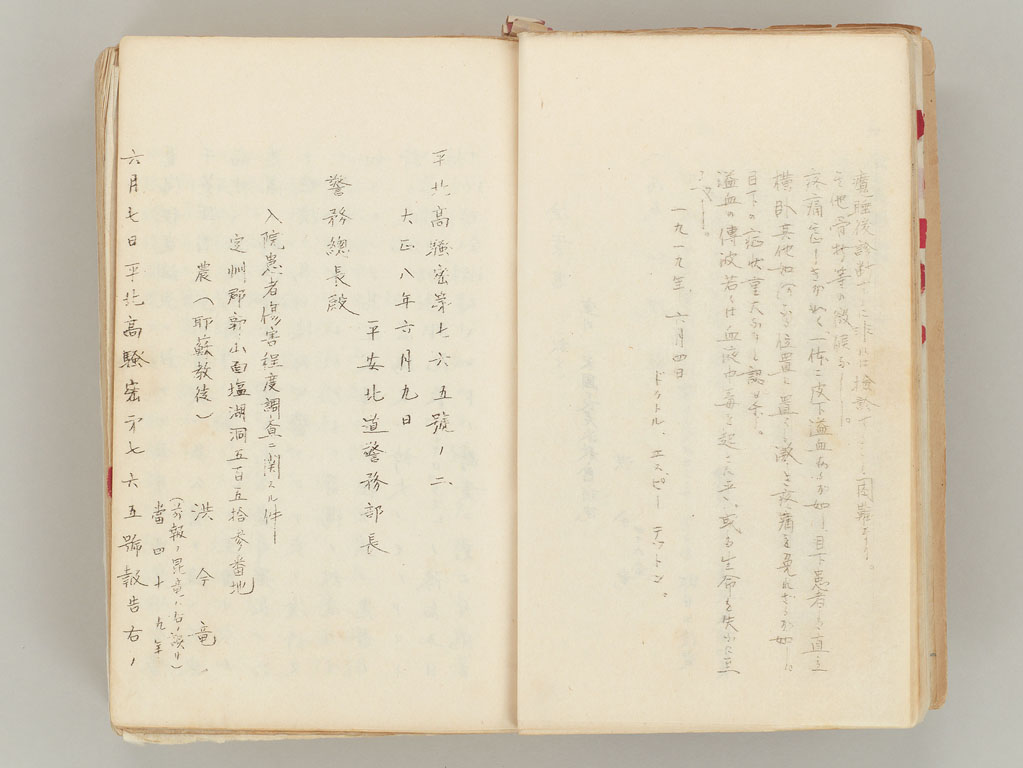 魔睡後診断スルニ非レハ検診スルコト困難ナリ。
其他骨折等ノ徴候ナシ。
疼痛甚シキガ如ク一体ニ皮下溢血アルガ如シ、目下患者ハ直立
横臥其他如何ナル位置ニ置クモ激シキ疼痛ヲ免レザルガ如シ
目下ノ病状重大ナリト認ム。
溢血ノ傳波若クハ血液中毒ヲ起スニ至ハ或ハ生命ヲ失フニ至
ルヘシ。
一九一九年、六月四日
ドクトル、エスピー テットン。
平北高騷密第七六五號ノ二
大正八年六月九日
平安北道警務部長
警務總長殿
入院患者傷害程度調査ニ関スル件
定州郡郭山面塩湖洞五百五拾参番地
農(耶蘇教徒)
洪今竜
(前報ノ昆竜ハ右ノ誤リ)
當四十九年
六月七日平北高騷密第七六五號報告右ノ